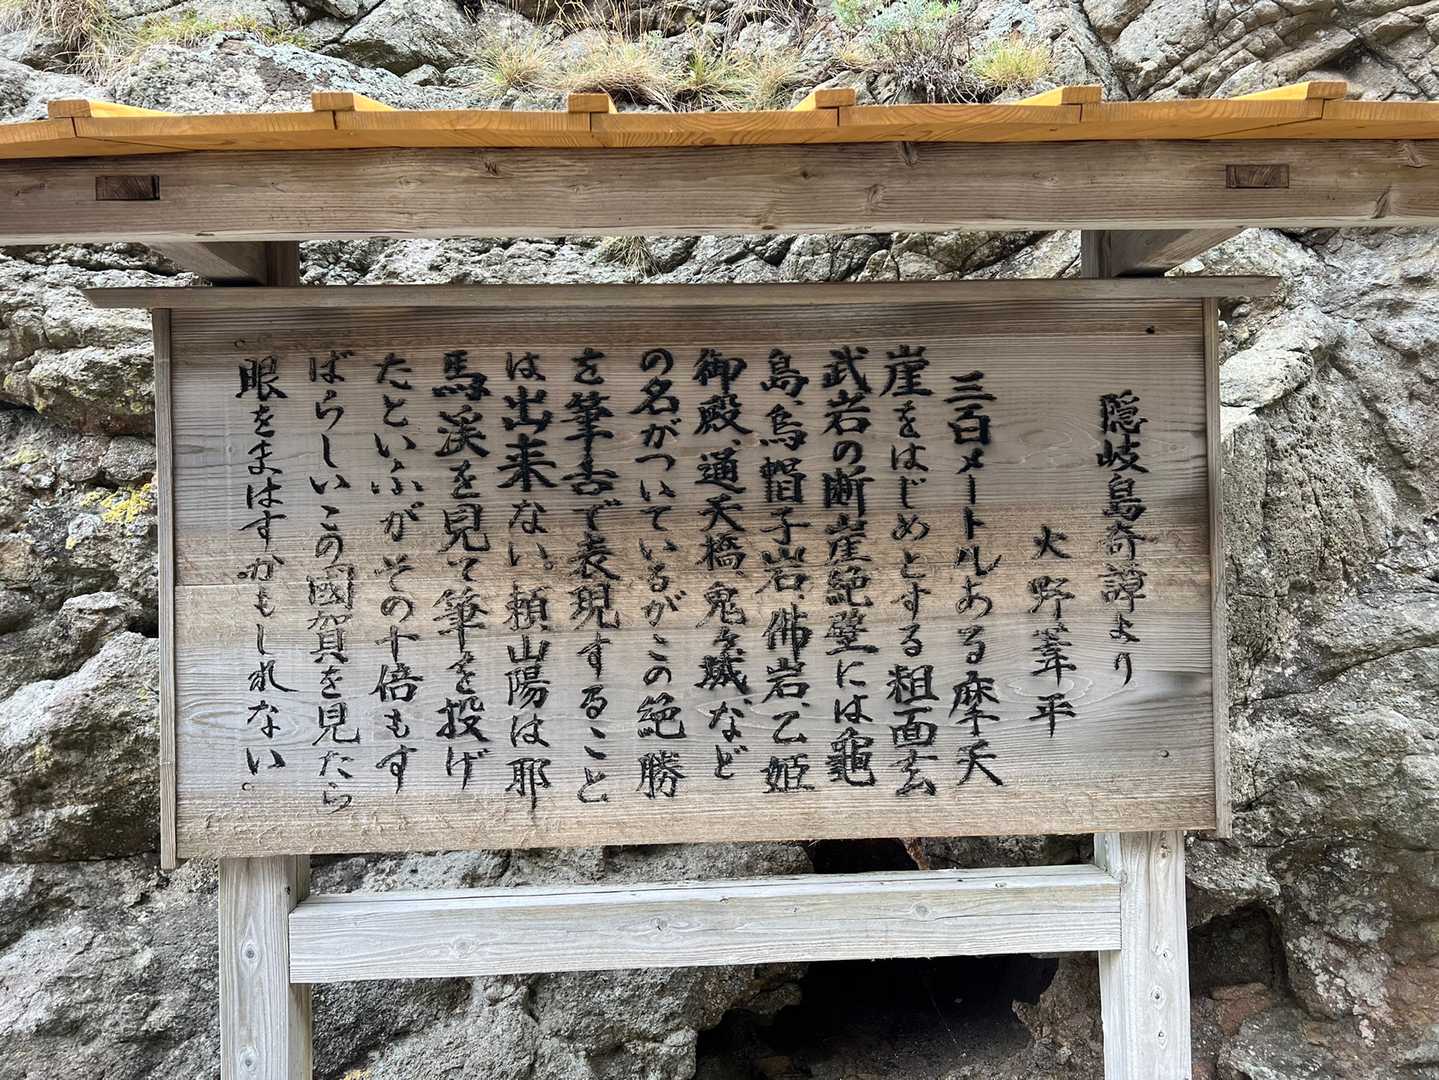 隠岐島奇譚より
火野葦平
三百メートルある摩天
崖をはじめとする粗面玄
武岩の断崖絶壁には亀
島、烏帽子岩、佛岩、乙姫
御殿、通天橋、鬼ヶ城、など
の名がついているがこの絶勝
を筆舌で表現すること
は出来ない。頼山陽は耶
馬渓を見て筆を投げ
たといふがその十倍もす
ばらしいこの國賀を見たら
眼をまはすかもしれない。